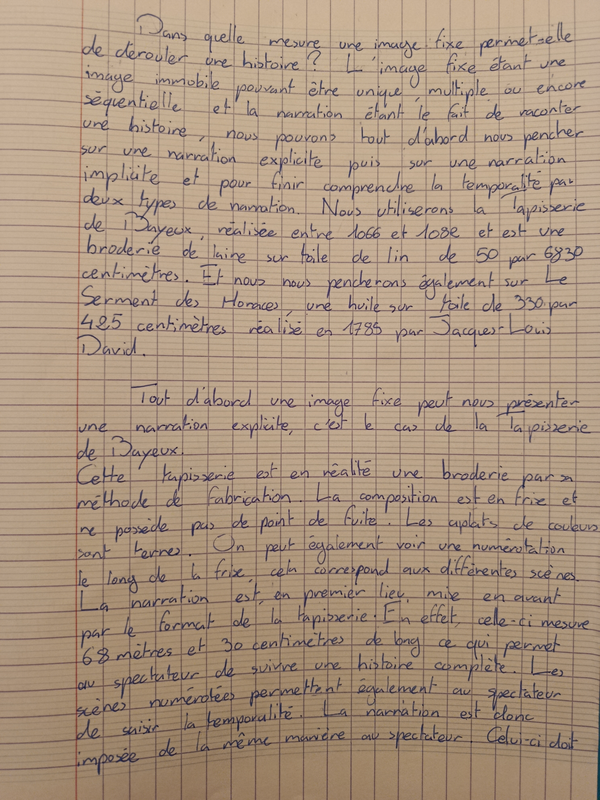 Dans quelle mesure une image fixe permet-elle
de dérouler une histoire ? L'image fixe étant une
image immobile pouvant être unique, multiple ou encore
séquentielle et la narration étant le fait de raconter
une histoire, nous pouvons tout d'abord nous pencher
sur une narration explicite puis sur une narration
implicite et pour finir comprendre la temporalité par
deux types de narration. Nous utiliserons la Tapisserie
de Bayeux, réalisée entre 1066 et 1082 et est une
broderie de laine sur toile de lin de 50 par 6830
centimètres. Et nous nous pencherons également sur Le
Serment des Horaces, une huile sur toile de 330 par
425 centimètres réalisé en 1785 par Jacques-Louis
David.
Tout d'abord une image fixe peut nous présenter
une narration explicite, c'est le cas de la Tapisserie
de Bayeux.
Cette tapisserie est en réalité une broderie par sa
méthode de fabrication. La composition est en frise et
ne possède pas de point de fuite. Les aplats de couleurs
sont ternes. On peut également voir une numérotation
le long de la frise, cela correspond aux différentes scènes.
La narration est, en premier lieu, mise en avant
par le format de la tapisserie. En effet, celle-ci mesure
68 mètres et 30 centimètres de long ce qui permet
au spectateur de suivre une histoire complète. Les
scènes numérotées permettent également au spectateur
de saisir la temporalité. La narration est donc
imposée de la même manière au spectateur. Celui-ci doit